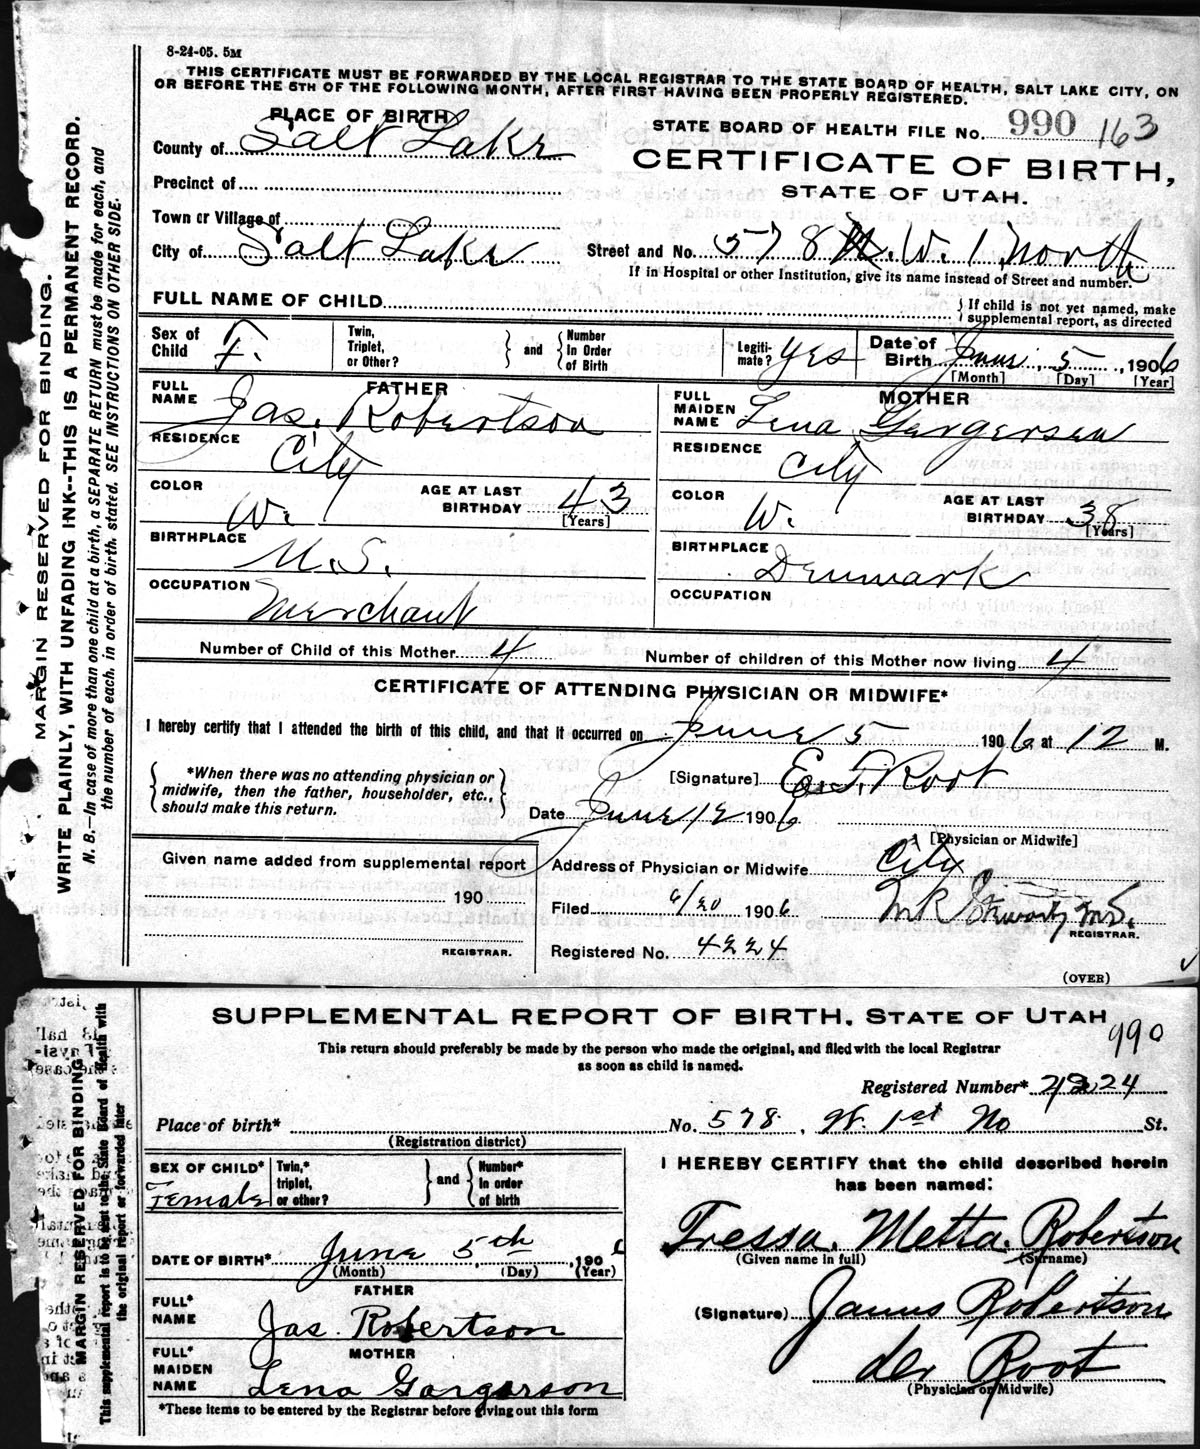 8-24-05. 5M
THIS CERTIFICATE MUST BE FORWARDED BY THE LOCAL REGISTRAR TO THE STATE BOARD OF HEALTH, SALT LAKE CITY, ON
OR BEFORE THE 5TH OF THE FOLLOWING MONTH, AFTER FIRST HAVING BEEN PROPERLY REGISTERED.
PLACE OF BIRTH
STATE BOARD OF HEALTH FILE No. 990 163
County of Salt Lake
CERTIFICATE OF BIRTH,
STATE OF UTAH.
Precinct of
Town or Village of
City of Salt Lake
Street and No. 578 W. 1 North
If in Hospital or other Institution, give its name instead of Street and number.
FULL NAME OF CHILD
{ If child is not yet named, make
supplemental report, as directed
Sex of Child F.
Twin, Triplet, or Other? } and { Number In Order of Birth
Legiti-mate? yes
Date of Birth June 5, 1906
[Month] [Day] [Year]
FATHER
FULL NAME Jas. Robertson
RESIDENCE City
COLOR W.
AGE AT LAST BIRTHDAY 43
[Years]
BIRTHPLACE U.S.
OCCUPATION Merchant
MOTHER
FULL MAIDEN NAME Lena Gergersen
RESIDENCE City
COLOR W.
AGE AT LAST BIRTHDAY 38
[Years]
BIRTHPLACE Denmark
OCCUPATION
Number of Child of this Mother 4
Number of children of this Mother now living 4
CERTIFICATE OF ATTENDING PHYSICIAN OR MIDWIFE*
I hereby certify that I attended the birth of this child, and that it occurred on June 5 1906 at 12 M.
{ *When there was no attending physician or
midwife, then the father, householder, etc.,
should make this return. }
[Signature] E. F. Root
Date June 12 1906
[Physician or Midwife]
Given name added from supplemental report
190
REGISTRAR.
Address of Physician or Midwife City
Filed 6/20 1906
M R Stewart M.D.
REGISTRAR.
Registered No. 4224
(OVER)
MARGIN RESERVED FOR BINDING.
WRITE PLAINLY, WITH UNFADING INK--THIS IS A PERMANENT RECORD.
N. B.—In case of more than one child at a birth, a SEPARATE RETURN must be made for each, and
the number of each, in order of birth, stated. SEE INSTRUCTIONS ON OTHER SIDE.
SUPPLEMENTAL REPORT OF BIRTH, STATE OF UTAH
990
This return should preferably be made by the person who made the original, and filed with the local Registrar
as soon as child is named.
Registered Number* 4224
Place of birth* No. 578. W. 1st No St.
(Registration district)
SEX OF CHILD* Female
Twin,* triplet, or other? } and { Number* In order of birth
DATE OF BIRTH* June 5th, 1906
(Month) (Day) (Year)
FATHER
FULL* NAME Jas. Robertson
MOTHER
FULL* MAIDEN NAME Lena Gargerson
*These items to be entered by the Registrar before giving out this form
I HEREBY CERTIFY that the child described herein
has been named:
Tressa. Metta. Robertson
(Given name in full) (Surname)
(Signature) James Robertson
der Root
(Physician or Midwife)
MARGIN RESERVED FOR BINDING
This supplemental report is to be sent to the State Board of Health with
the original report or forwarded later